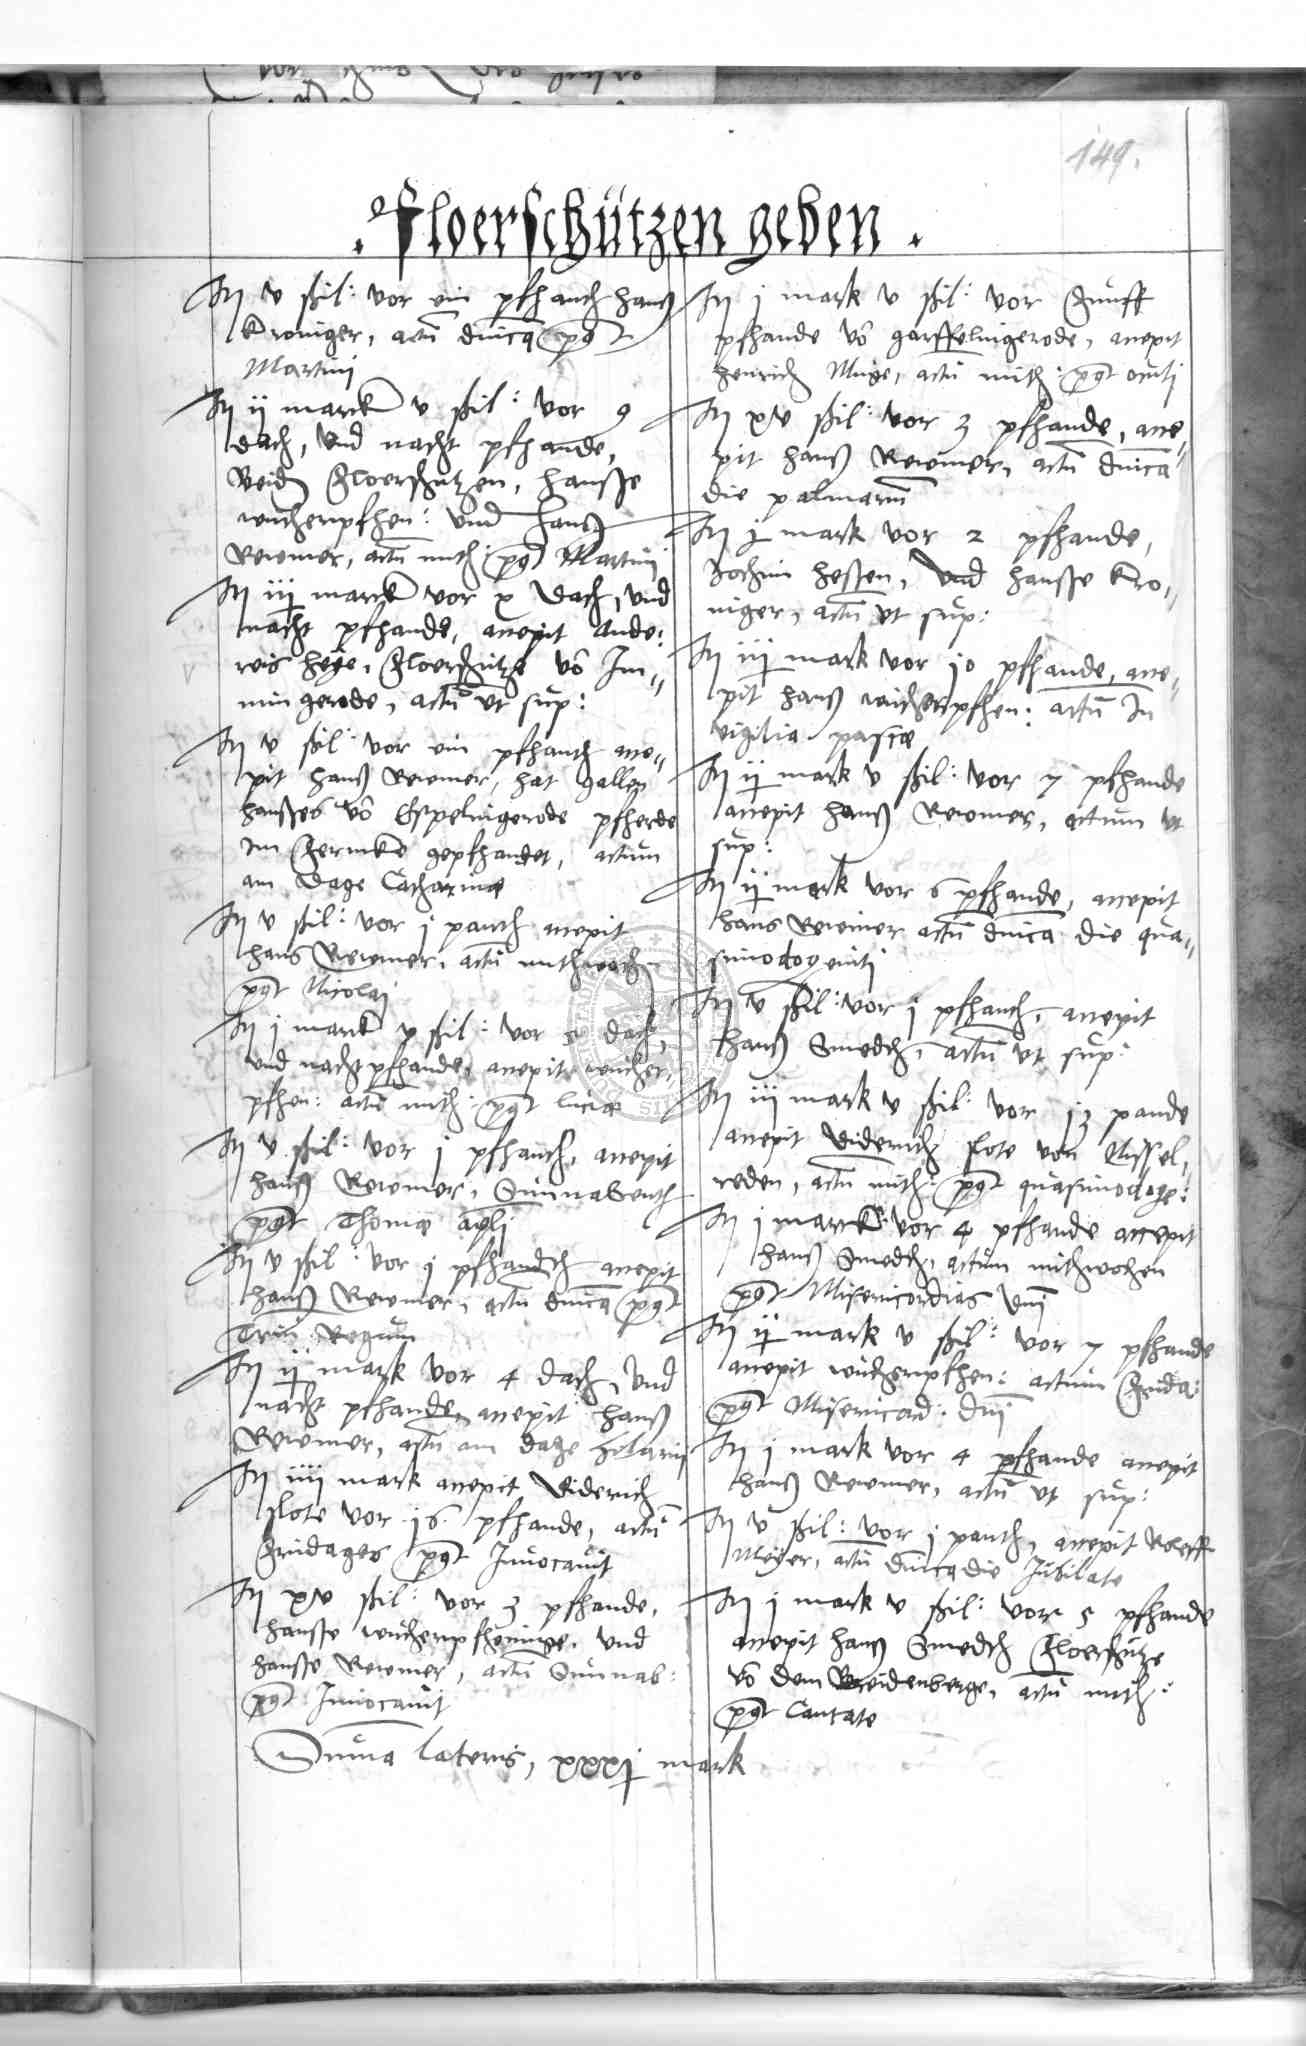 149.
. Floerschützen geben .
It v ßil: vor ein pfhandt hanß
Kroniger, actū dnica pꝯt
Martini
It ij marck v ßil: vor 9
dach, vnd nacht pfhande,
Beid Floerschutzen, hansse
wucherpfhen: vnd hanß
Rewmer, actū mith: pꝯt Martini
It iij marck vor x dach, vnd
nacht pfhande, accepit Andr:
reis heye, Floerschutze vō Im=
mingerode, actū vt sup:
It v ßil: vor ein pfhandt acce=
pit hanß Rewmer, hat
hanßes vō Espelingerode pfherde
Im gepfhandet, actum
am dage Catharinæ
It v ßil: vor j pandt accepit
hans Rewmer, actū mithwoch
pꝯt Nicolaj
It j marck v ßil: vor 5 dach,
vnd nacht pfhande, accepit wucher=
pfhen: actū mith: pꝯt luciæ
It v ßil: vor j pfhandt, accepit
hanß Rewmer, Sunnabendt
pꝯt Thomæ apli
It v ßil: vor j pfhandt accepit
hanß Rewmer, actū dnica pꝯt
Trium Regum
It ij mark vor 4 dach, vnd
nacht pfhande, accepit hanß
Rewmer, actū am dage hilarij
It iiij mark accepit Diderich
flote vor 16 pfhande, actū
Fridages pꝯt Inuocauit
It xv ßil: vor 3 pfhande,
hansse wucherpfhennige, vnd
hansse Rewmer, actū Sunnab:
pꝯt Inuocauit
Suma lateris, xxxj mark
It j mark v ßil: vor funff
pfhande vō gerffelingerode, accepit
henrich Muge, actū mith: pꝯt oculi
It xv ßil: vor 3 pfhande, acce=
pit hanß Rewmer, actū dnica
die palmarum
It j mark vor 2 pfhande,
Jochim hessen, vnd hansse Kro=
niger, actū vt sup:
It iij mark vor 10 pfhande, acce=
pit hanß wucherpfhen: actū In
vigilia pascæ
It ij mark v ßil: vor 7 pfhande
accepit hanß Rewmer, actum vt
sup:
It ij mark vor 6 pfhande, accepit
hans Rewmer actū dnica die qua=
simodogeniti
It v ßil: vor j pfhandt, accepit
hanß Smedt, actū vt sup:
It iij mark v ßil: vor 13 pande
accepit Diderich flote von
reden, actū mith: pꝯt quasimodoge:
It j marck vor 4 pfhande accepit
hanß Smedt, actum mithwochen
pꝯt Misericordias dni
It ij mark v ßil: vor 7 pfhande
accepit wucherpfhen: actum Frida:
pꝯt Misericord: dni
It j mark vor 4 pfhande accepit
hanß Rewmer, actū vt sup:
It v ßil: vor j pandt, accepit Roleff
Meyer, actū dnica die Jubilate
It j mark v ßil: vor 5 pfhande
accepit hanß Smedt Floerschutze
vō dem Breidenberge, actū mith:
pꝯt Cantate